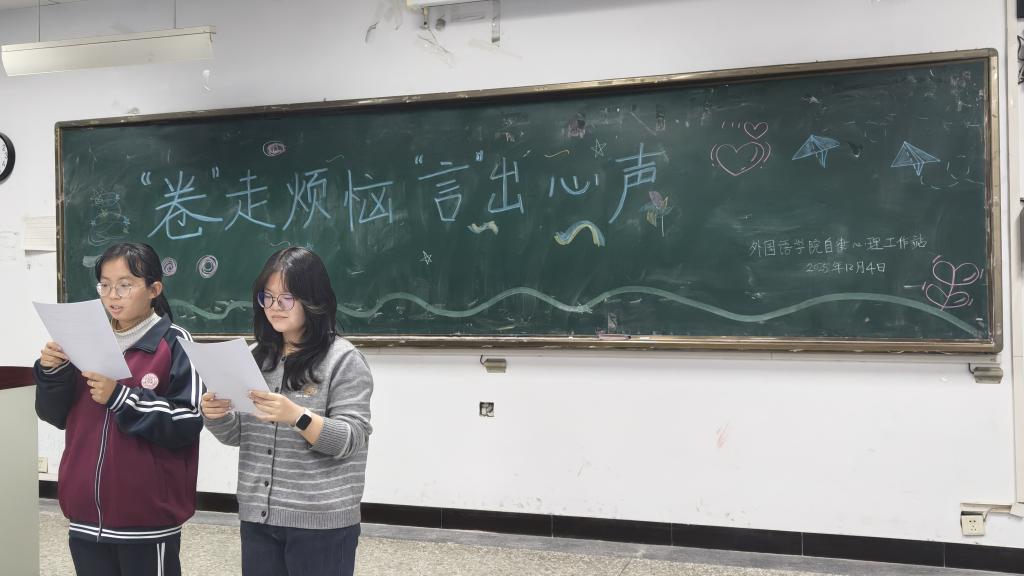 “卷”走烦恼“言”出心声
外国语学院自律心理工作站
2025年12月4日